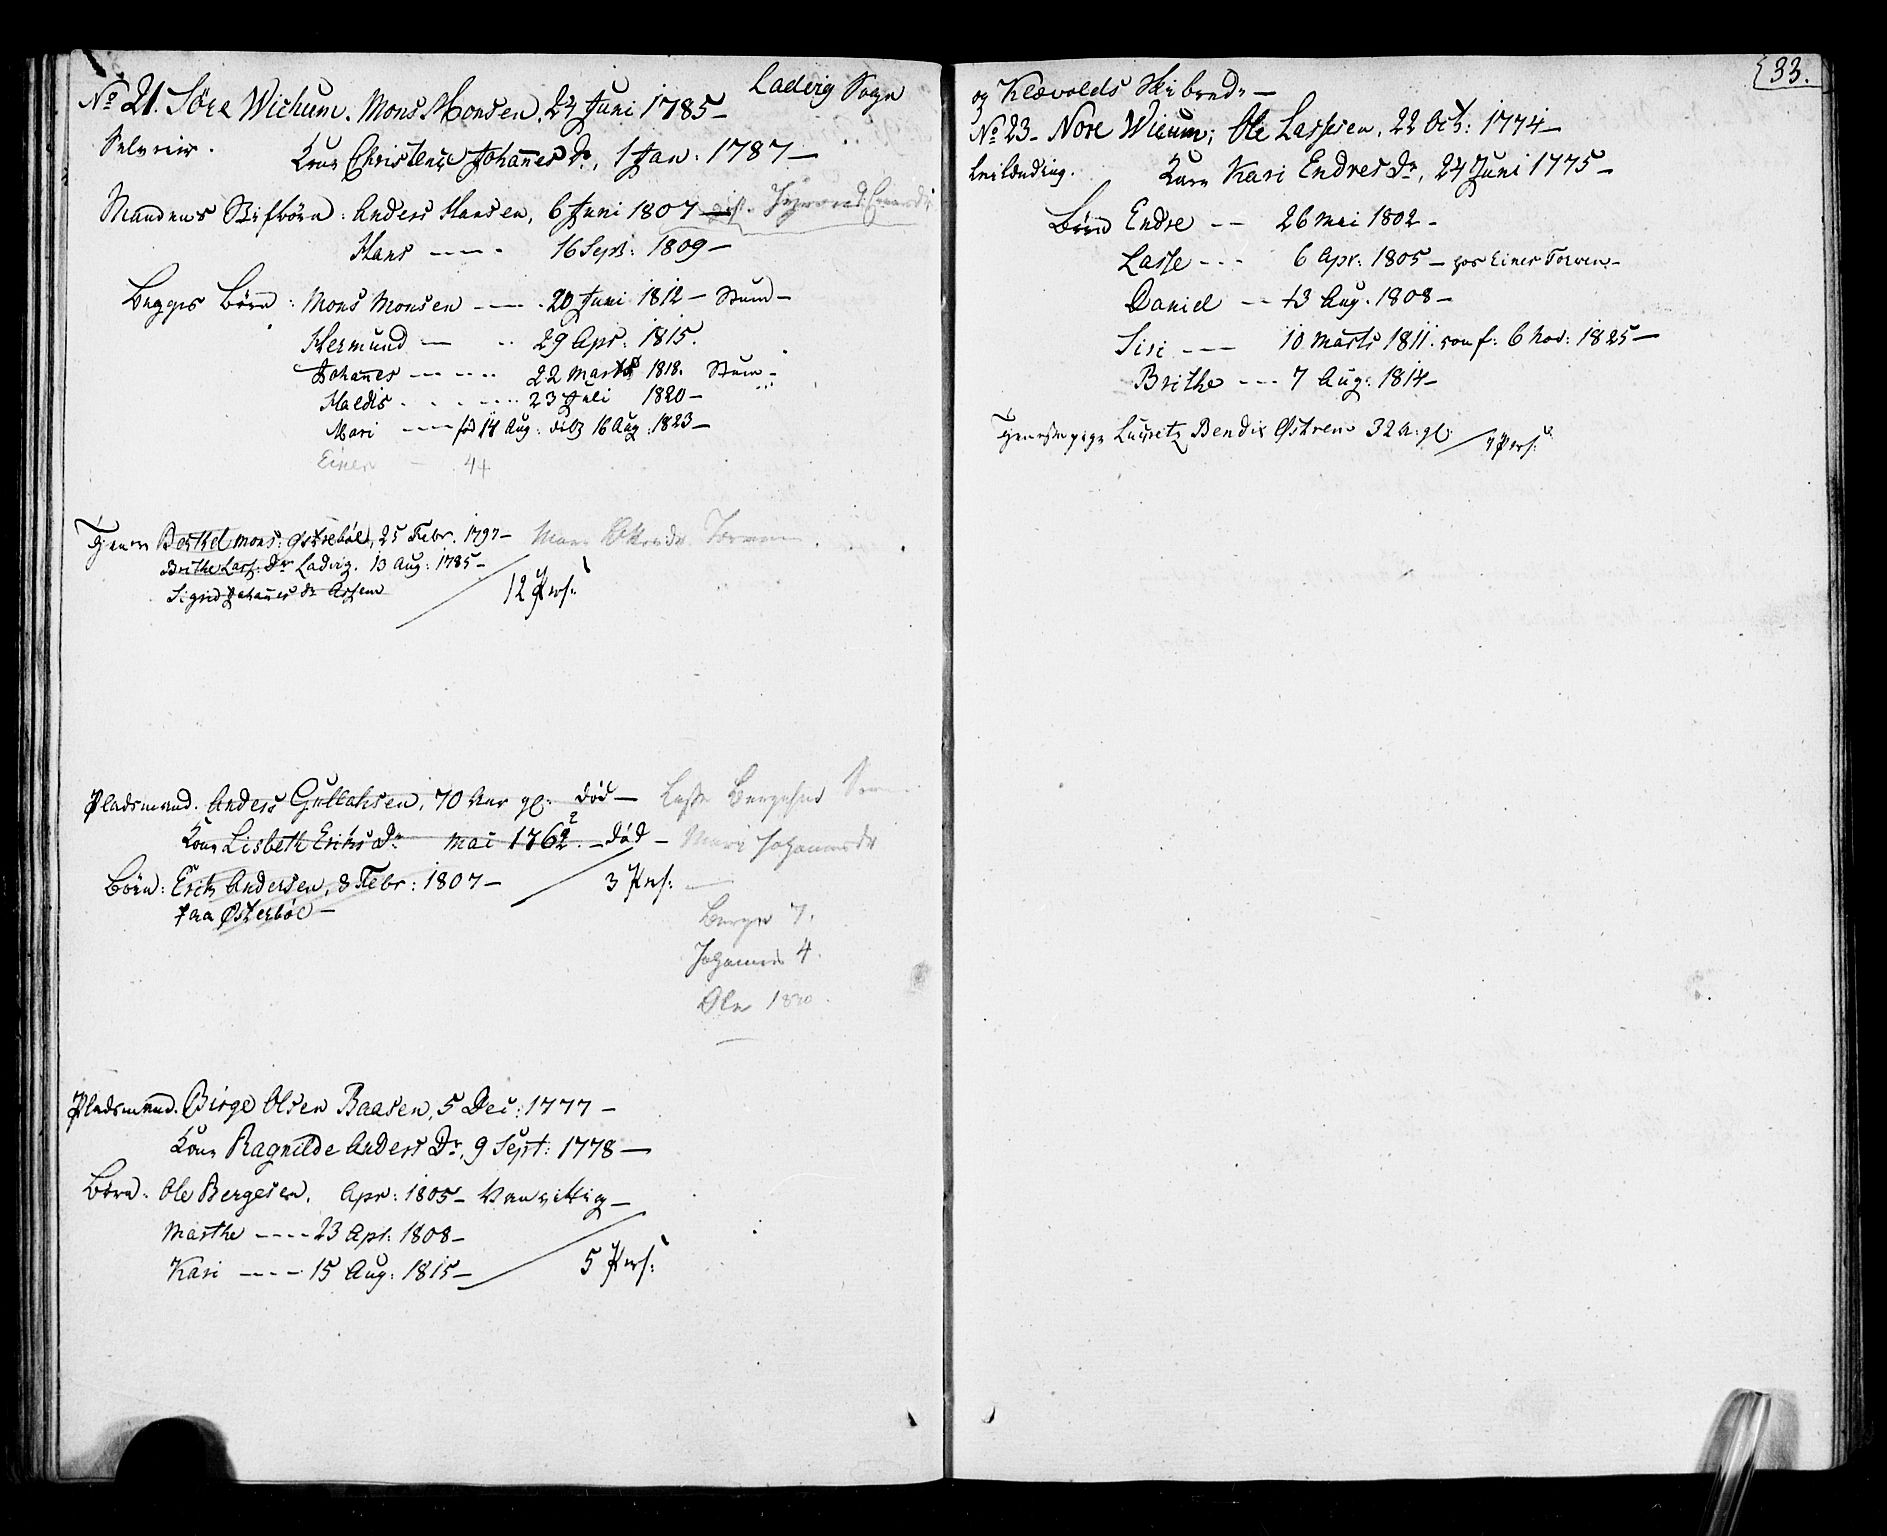 Ladvig Sogn
No 21. Søre Wichum. Mons Monsen, 24 Juni 1785 —
Selveier. Kone Christence Johannes Dr, 1 Jan: 1787 —
Mandens Stifbörn: Anders Hansen, 6 Juni 1807 — gift.
Hans — — — 16 Sept: 1809 —
Begges Börn: Mons Monsen — — 20 Juni 1812 — Stum —
Hermund — .. 29 Apr: 1815.
Johannes — — .... 22 Marts 1818. Stum —
Haldis . . — .... 23 Juli 1820 —
Mari — — fød 14 Aug: dibt 16 Aug: 1823 —
Einer — 44
Tjener Berthel Mons: Østrebøe, 25 Febr. 1797 —
Brithe Lass: Dr Ladvig. 13 Aug: 1785 —
Sigrid Johannes dr
12 Pers:
Pladsmand. Anders Gullaksen, 70 Aar gl: død —
Kone Lisbeth Eriks Dr Mai 1762. — død — Mari Johannesdr
Börn: Erik Andersen, 8 Febr: 1807 — 3 Pers: —
paa Østerböe —
Berge 7.
Johannes 4.
Ole 1830.
Pladsmand. Birge Olsen Baasen, 5 Dec: 1777 —
Kone Ragnilde Anders Dr, 9 Sept: 1778 —
Börn: Ole Bergesen, Apr: 1805 — Vanvittig —
Marthe — — — — 23 Apr: 1808 —
Kari — — — — 15 Aug: 1815 — 5 Pers:
33.
og Klævolds Skibred: —
No 23 — Nore Wicum; Ole Lassesen, 22 Oct: 1774 —
Leilænding. Kone Kari Endres Dr, 24 Juni 1775 —
Börn Endre — — 26 Mai 1802 —
Lasse — — — 6 Apr: 1805 — hos Einer Torven —
Daniel — 13 Aug: 1808 —
Siri — — — 10 Marts 1811. conf: 6 Nov: 1825 —
Brithe — — — 7 Aug: 1814 —
Tjenestepige Bendix Østren 32 A: gl: 7 Pers: